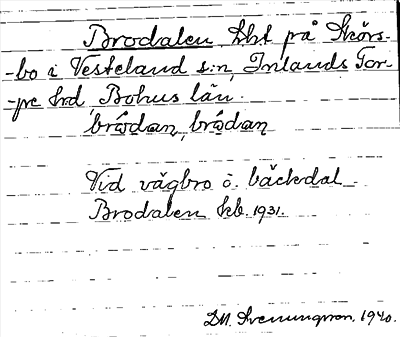 Brodalen lht på Skörs-
-bo i Vesteland s:n, Inlands Tor-
-pe hrd Bohus län.
brodan, brodan
Vid vägbro ö. bäckdal
Brodalen kb. 1931.
D.M. Svenungsson. 1940.